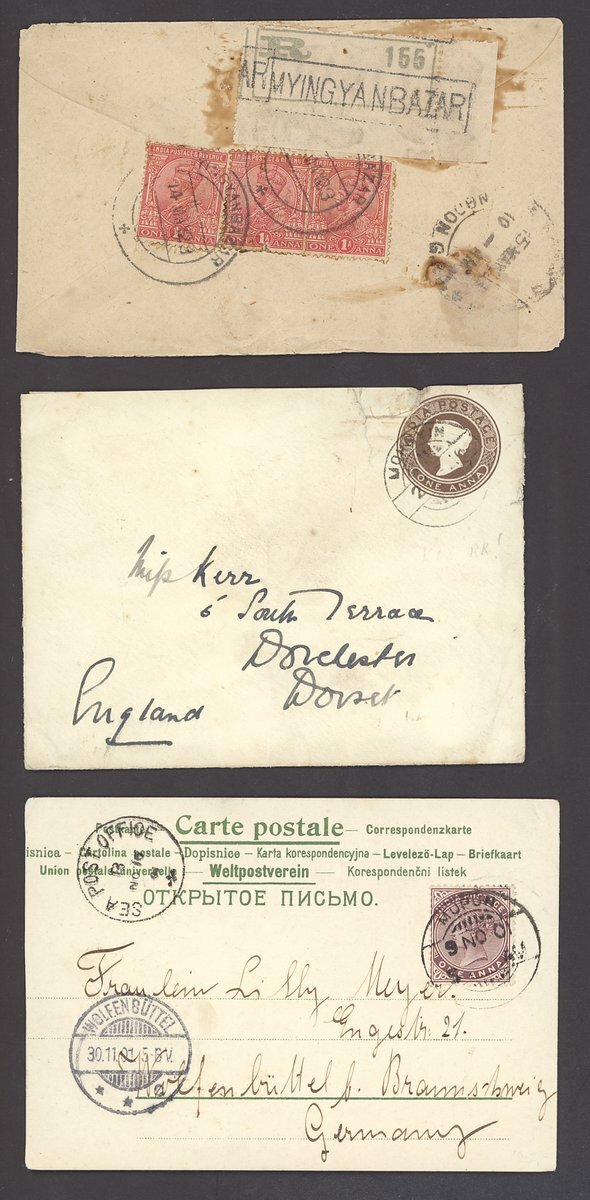 R 166
AR MYINGYANBAZAR
INDIA POSTAGE & REVENUE INDIA POSTAGE & REVENUE INDIA POSTAGE & REVENUE
ONE ANNA 1A ANNA ONE 1A ANNA
INDIA POSTAGE
ONE ANNA
Miss Kerr
6 South Terrace
Dorchester
Dorset
England
Carte postale — Correspondenzkarte
isnica — Cartolina postale — Dopisnice — Karta korespondencyjna — Levelező-Lap — Briefkaart
Union postale universelle — Weltpostverein — Korespondenční lístek
ОТКРЫТОЕ ПИСЬМО.
SEA POST OFFICE
ONE ANNA
Fräulein Lilly Meyer.
Engestr. 21.
WOLFENBÜTTEL
30.11.01. 5-6 V.
Wolfenbüttel b. Braunschweig
Germany